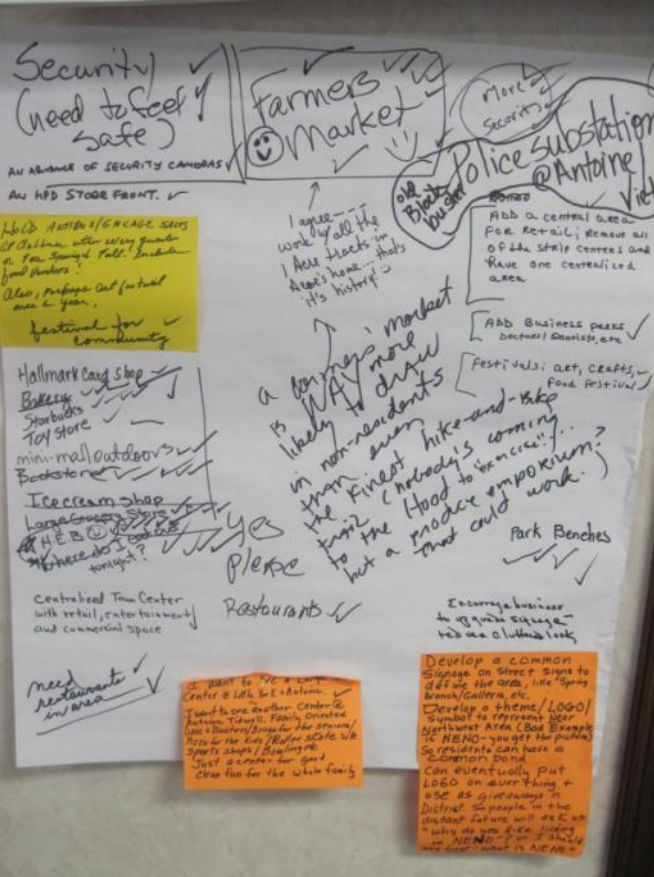 Security
(need to feel
safe)
AN ADVANCE OF SECURITY CAMERAS
AN HPD STORE FRONT.
Farmers
Market
More
Security
Police substation
@Antoine/
old
Block
buster
I agree----
work w/all the
1 Acre tracts in
Acres home... that's
it's history!
ADD a central area
FOR Retail; Remove all
of the strip centers and
Have one centralized
area
ADD Business parks
Doctors/Dentists, etc
Festivals: art, crafts,
food festival
HOLD ANTIQUE/GARAGE SALES
or Fall. Include
food vendors!
Also, perhaps art festival
once a year.
festival for
community
Hallmark Card shop
Bakery
Starbucks
Toy Store
mini-mall outdoors
Bookstore
Icecream shop
Large Grocery Store
H.E.B
Where do I
tonight?
Yes
Please
a farmers' market
is WAY more
likely to draw
in non-residents
than even
the finest hike-and-bike
trail (nobody's coming
to the Hood to "exercise")...
but a produce emporium?
that could work.
Park Benches
centralized Town Center
with retail, entertainment
and commercial space
Restaurants
Encourage business
to upgrade signage-
reduce clutter look
need
restaurants
in area
I want to see a
Center @ Little York + Antoine.
I want to see another center @
Antoine Tidwell. Family Oriented
for the seniors/
Pizza for the kids/Roller skate
sports shops/Bowling etc
Just a center for good
clean fun for the whole family
Develop a common
Signage on Street signs to
define the area, like Spring
Branch/Galleria, etc.
Develop a theme/LOGO/
symbol to represent Near
Northwest Area (Bad Example
is NENO-you get the picture)
So residents can have a
common bond
Can eventually put
LOGO on everything +
use as giveaways in
District. So people in the
distant future will ask us
"Why do you like living
in NENO"? or I should
say first "what is NENO"